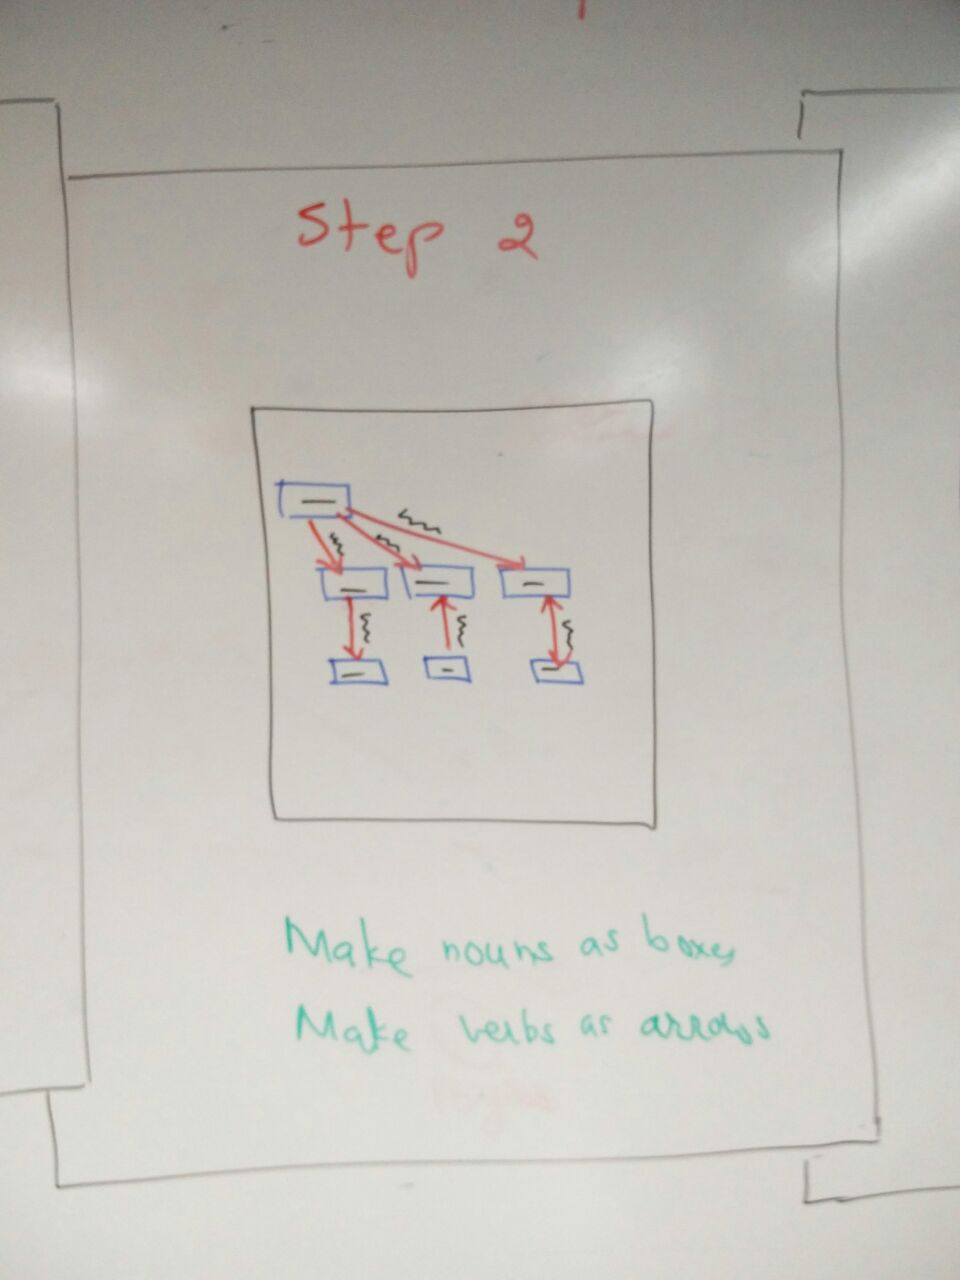 Step 2
Make nouns as boxes
Make verbs as arrows